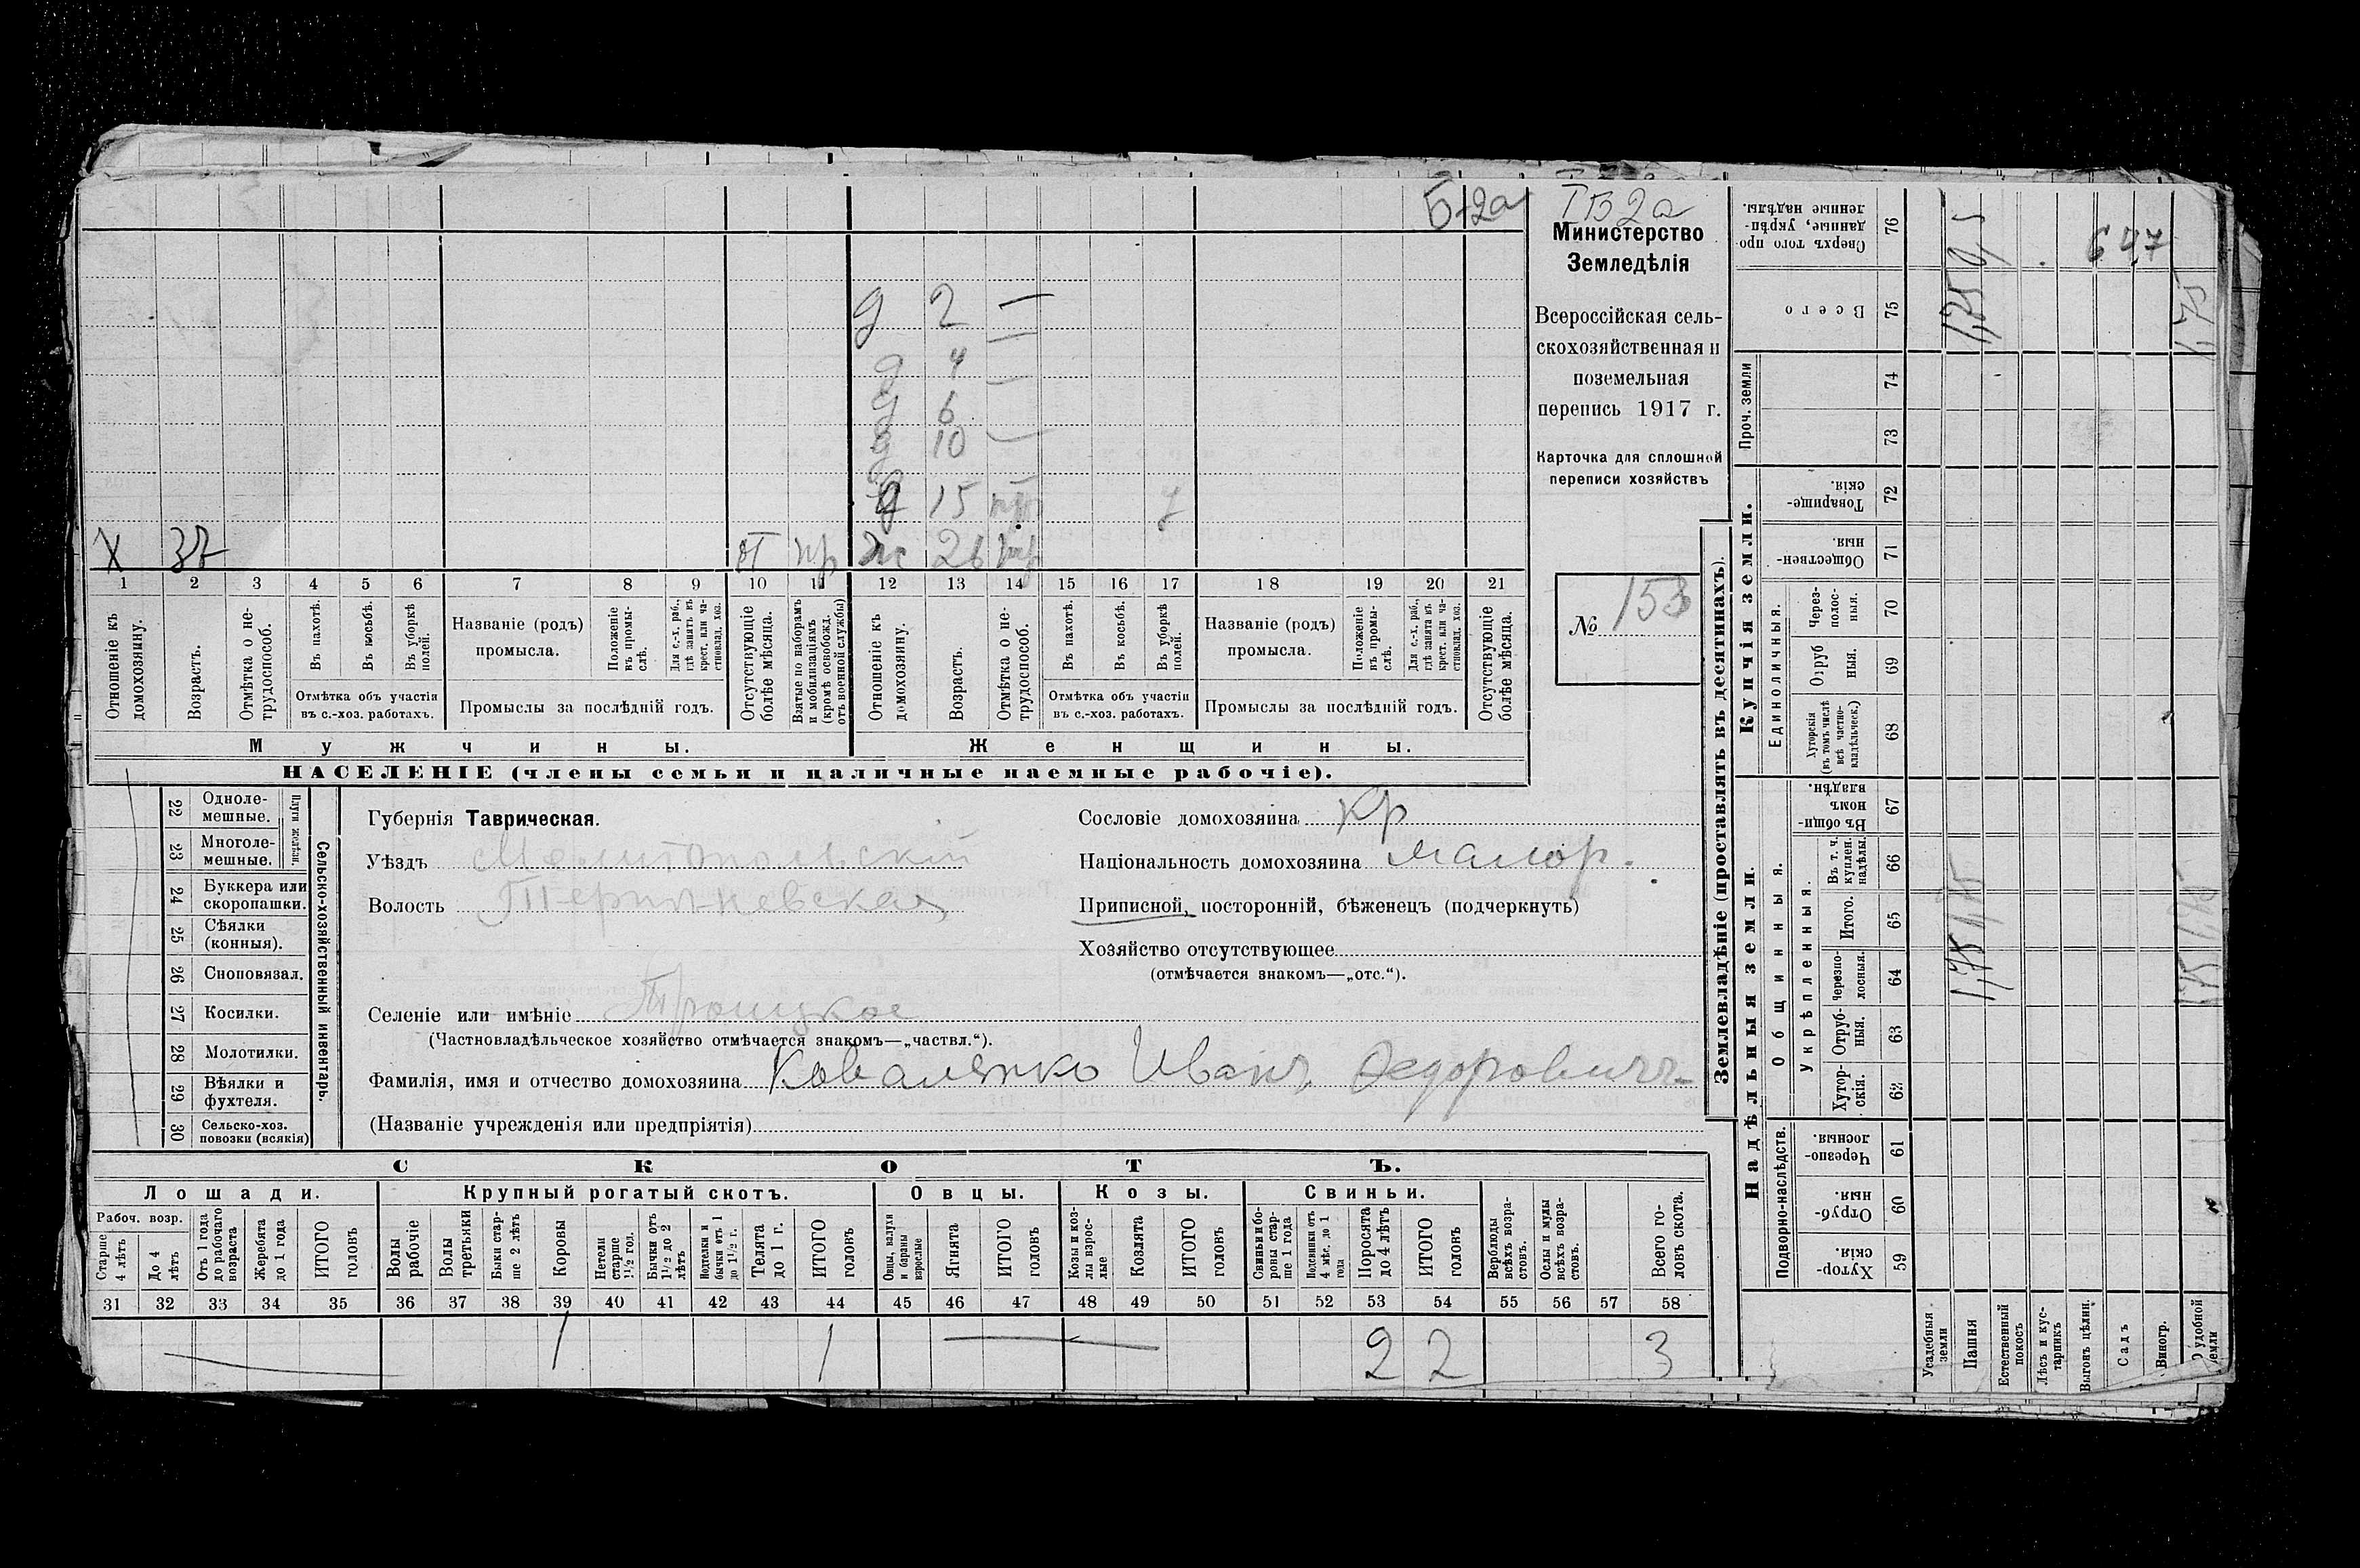 Б-2а
ІБ2а
Министерство
Земледѣлія
Всероссійская сель-
скохозяйственная и
поземельная
перепись 1917 г.
Карточка для сплошной
переписи хозяйствъ
№ 153
д 2 —
д 4 —
д 6 —
д 10 —
д 15
Х 37 от пр ж
1 2 3 4 5 6 7 8 9 10 11 12 13 14 15 16 17 18 19 20 21
Отношеніе къ домохозяину.
Возрастъ.
Отмѣтка о не-трудоспособ.
Въ пахотѣ.
Въ косьбѣ.
Въ уборкѣ полей.
Отмѣтка объ участіи
въ с.-хоз. работахъ.
Названіе (родъ)
промысла.
Положеніе въ промы-слѣ.
Для с.-х. раб., гдѣ занятъ въ крест. или ча-стновлад. хоз.
Промыслы за послѣдній годъ.
Отсутствующіе болѣе мѣсяца.
Взятые по наборамъ и мобилизаціямъ (кромѣ освобожд. отъ военной службы)
Отношеніе къ домохозяину.
Возрастъ.
Отмѣтка о не-трудоспособ.
Въ пахотѣ.
Въ косьбѣ.
Въ уборкѣ полей.
Отмѣтка объ участіи
въ с.-хоз. работахъ.
Названіе (родъ)
промысла.
Положеніе въ промы-слѣ.
Для с.-х. раб., гдѣ занята въ крест. или ча-стновлад. хоз.
Промыслы за послѣдній годъ.
Отсутствующіе болѣе мѣсяца.
Мужчины. Женщины.
НАСЕЛЕНІЕ (члены семьи и наличные наемные рабочіе).
Сельско-хозяйственный инвентарь.
Плуги желѣзн.
22 Одноле-мешные.
23 Многоле-мешные.
24 Буккера или скоропашки.
25 Сѣялки (конныя).
26 Сноповязал.
27 Косилки.
28 Молотилки.
29 Вѣялки и фухтеля.
30 Сельско-хоз. повозки (всякія)
Губернія Таврическая.
Уѣздъ Мелитопольскій
Волость
Селеніе или имѣніе Троицкое
(Частновладѣльческое хозяйство отмѣчается знакомъ—„частвл.“).
Фамилія, имя и отчество домохозяина Коваленко Иванъ Федоровичъ
(Названіе учрежденія или предпріятія)
Сословіе домохозяина кр
Національность домохозяина малор.
Приписной, посторонній, бѣженецъ (подчеркнуть)
Хозяйство отсутствующее
(отмѣчается знакомъ—„отс.“).
СКОТЪ.
Лошади. Крупный рогатый скотъ. Овцы. Козы. Свиньи.
Рабоч. возр.
Старше 4 лѣтъ
До 4 лѣтъ
Отъ 1 года до рабочаго возраста
Жеребята до 1 года
ИТОГО головъ
Волы рабочіе
Волы третьяки
Быки стар-ше 2 лѣтъ
Коровы
Нетели старше 1½ год.
Бычки отъ 1½ до 2 лѣтъ
Подтелки и бычки отъ 1 до 1½ г.
Телята до 1 г.
ИТОГО головъ
Овцы, валухи и бараны взрослые
Ягнята
ИТОГО головъ
Козы и коз-лы взрос-лые
Козлята
ИТОГО головъ
Свиньи и бо-ровы стар-ше 1 года
Подсвинки отъ 4 мѣс. до 1 года
Поросята до 4 лѣтъ
ИТОГО головъ
Верблюды всѣхъ возра-стовъ.
Ослы и мулы всѣхъ возра-стовъ.
Всего го-ловъ скота.
31 32 33 34 35 36 37 38 39 40 41 42 43 44 45 46 47 48 49 50 51 52 53 54 55 56 57 58
— 1 1 — 2 2 3
Землевладѣніе (проставлять въ десятинахъ).
Надѣльныя земли. Купчія земли. Проч. земли
Подворно-наслѣдств.
Общинныя.
Укрѣпленныя.
Единоличныя.
59 Хутор-скія.
60 Отруб-ныя.
61 Черезпо-лосныя.
62 Хутор-скія.
63 Отруб-ныя.
64 черезпо-лосныя.
65 Итого.
66 Въ т. ч. куплен. надѣлы.
67 Въ общи-номъ владѣн.
68 Хуторскія (въ томъ числѣ всѣ частно-владѣльческ.)
69 Отруб ныя.
70 Через-полос-ныя.
71 Обществен-ныя.
72 Товарище-скія.
73
74
75 Всего
76 Сверхъ того про-данные, укрѣп-ленные надѣлы.
Усадебныя земли
Пашня
Естественный покосъ
Лѣсъ и кус-тарникъ
Выгонъ цѣлин.
Садъ
Виногр.
удобной земли
1,75